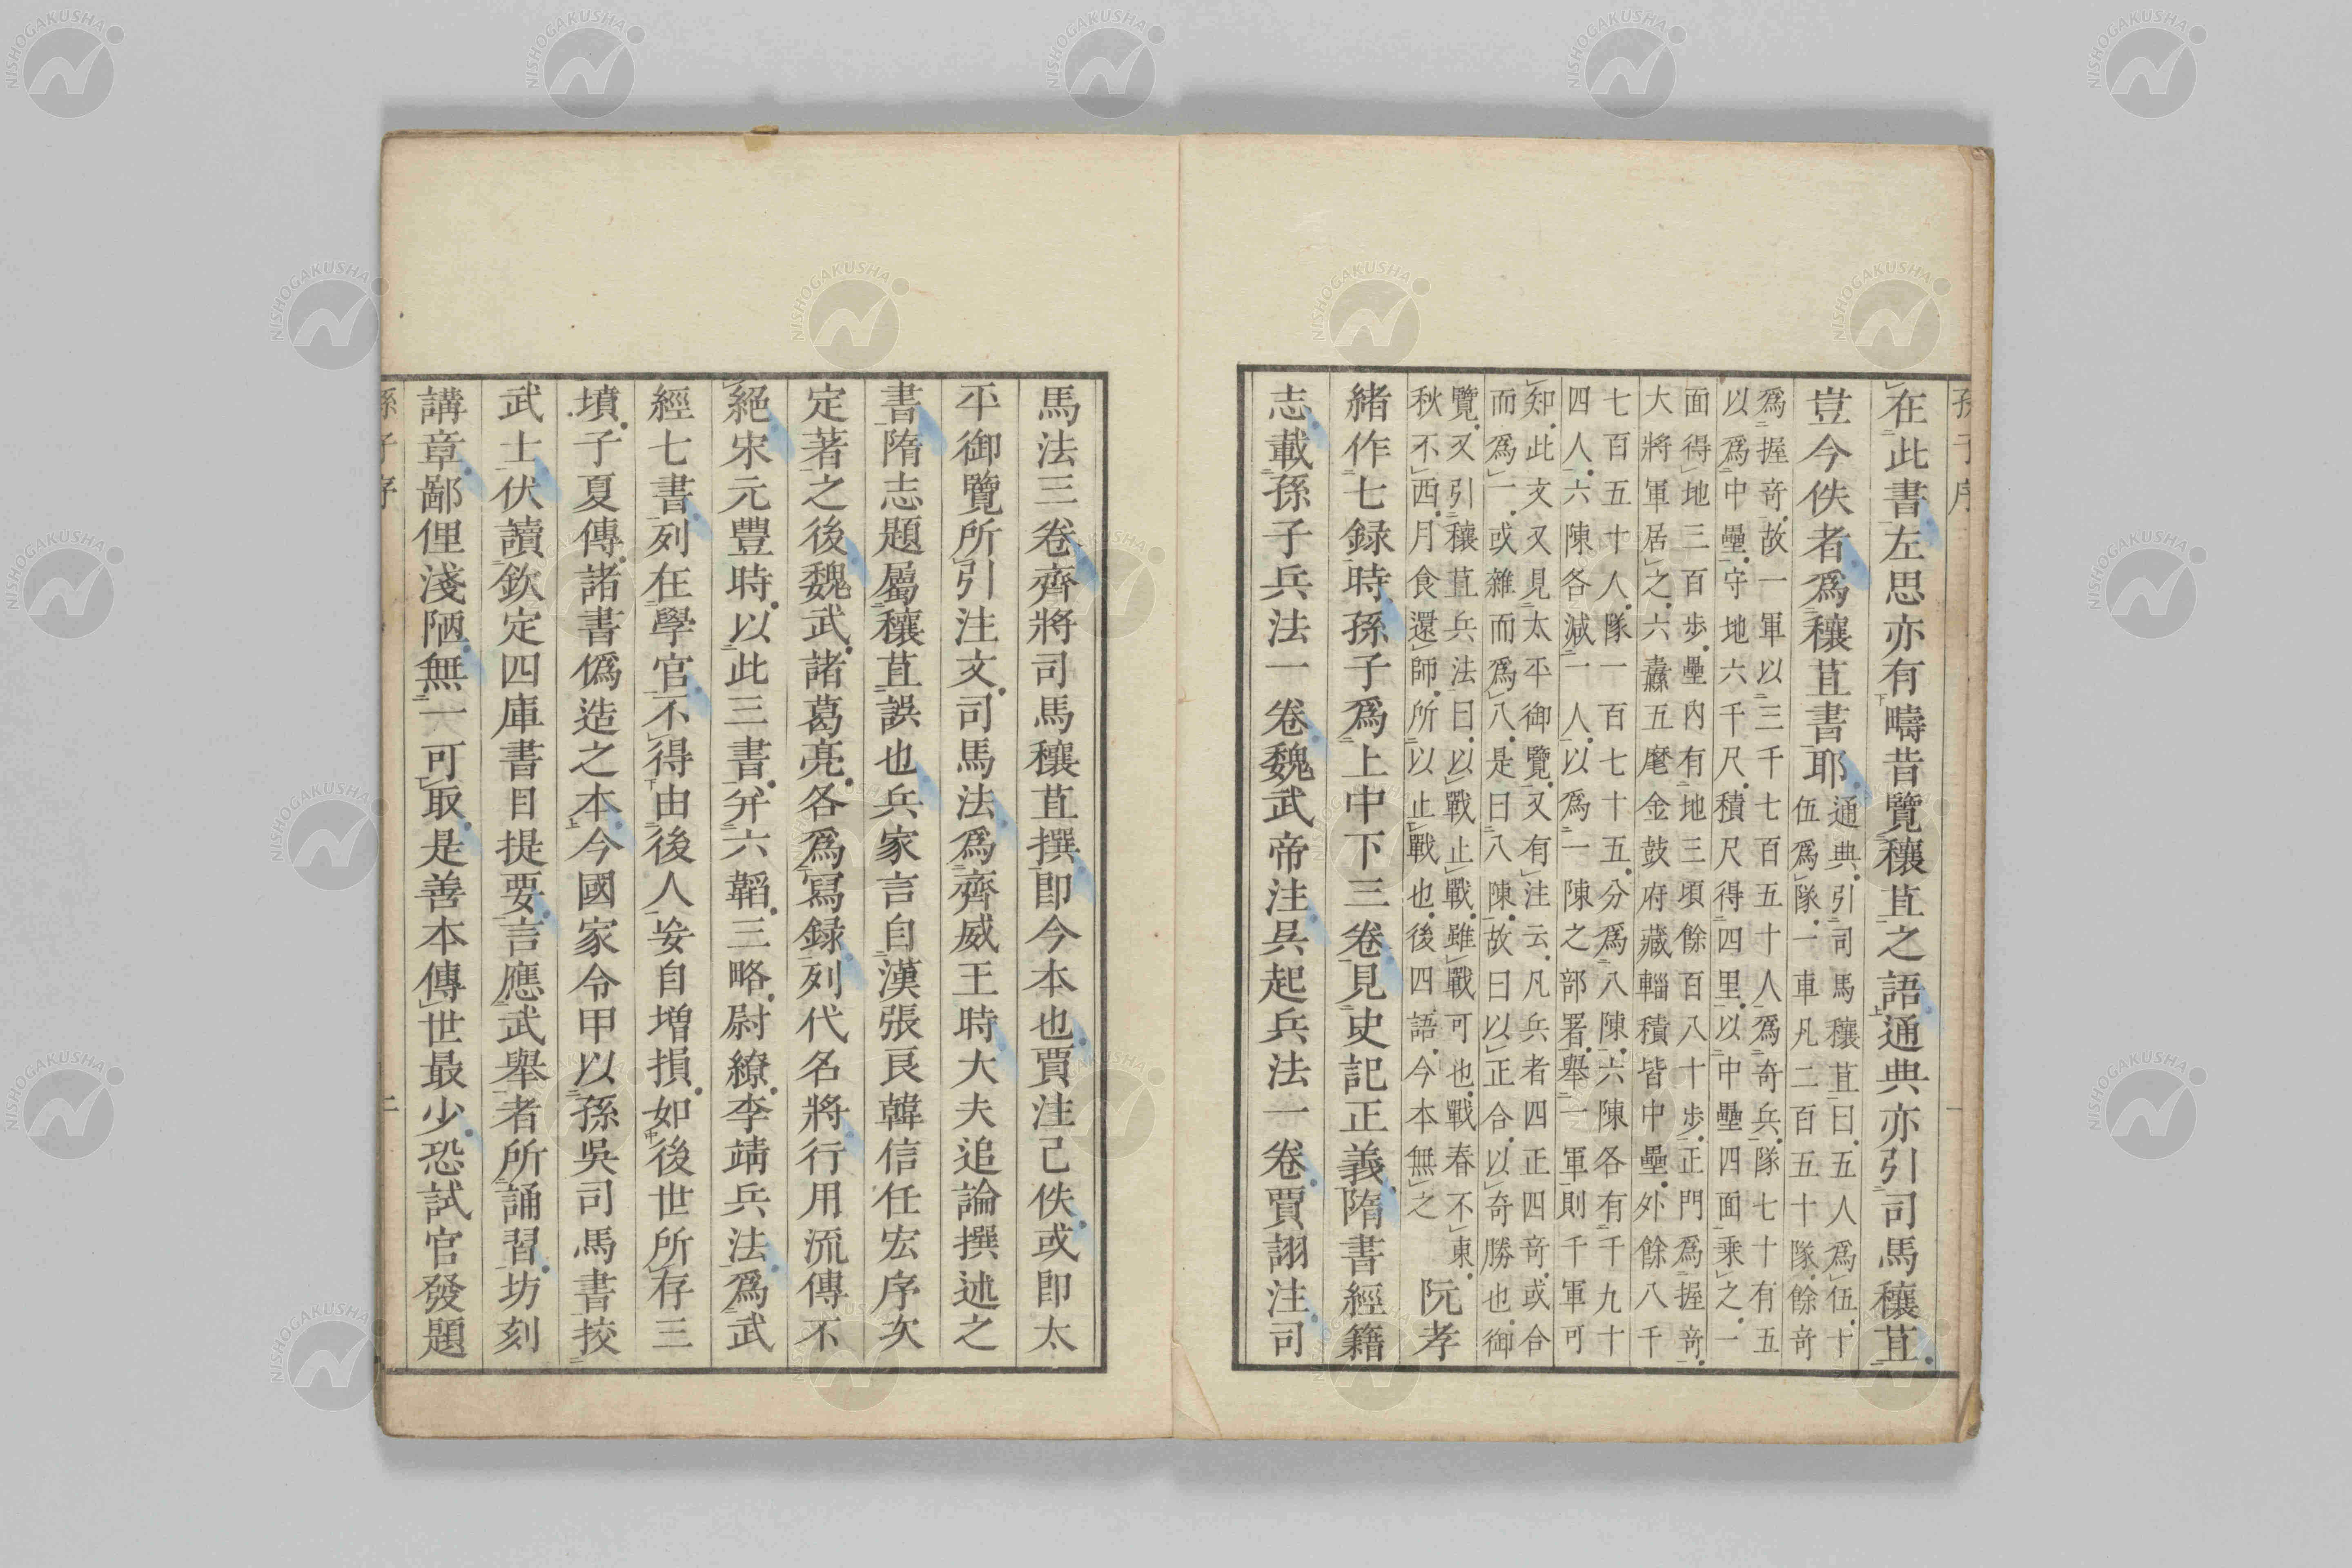 孫子序
在此書左思亦有疇昔覽穰苴之語通典亦引司馬穰苴
豈今佚者爲穰苴書耶
通典引司馬穰苴曰五人爲伍十
伍爲隊一車凡二百五十隊餘奇
爲握奇故一軍以三千七百五十人爲奇兵隊七十有五
以爲中壘守地六千尺積尺得四里以中壘四面乘之一
面得地三百步壘内有地三頃餘百八十步正門爲握奇
大將軍居之六纛五麾金鼓府藏輜積皆中壘外餘八千
七百五十人隊一百七十五分爲八陳六陳各有千九十
四人六陳各減一人以爲一陳之部署舉一軍則千軍可
知此文又見太平御覽又有注云凡兵者四正四奇或合
而爲一或雜而爲八是曰八陳故曰以正合以奇勝也御
覽又引穰苴兵法曰以戰止戰雖戰可也戰春不東
秋不西月食還師所以止戰也後四語今本無之
阮孝
緒作七録時孫子爲上中下三卷見史記正義隋書經籍
志載孫子兵法一卷魏武帝注吳起兵法一卷賈詡注司
馬法三卷齊將司馬穰苴撰即今本也賈注己佚或即太
平御覽所引注文司馬法爲齊威王時大夫追論撰述之
書隋志題屬穰苴誤也兵家言自漢張良韓信任宏序次
定著之後魏武諸葛亮各爲寫録列代名將行用流傳不
絕宋元豐時以此三書并六韜三略尉繚李靖兵法爲武
經七書列在學官不得由後人妄自增損如後世所存三
墳子夏傳諸書僞造之本今國家令甲以孫吳司馬書挍
武士伏讀欽定四庫書目提要言應武舉者所誦習坊刻
講章鄙俚淺陋無一可取是善本傳世最少恐試官發題
孫子序
二
NISHOGAKUSHA